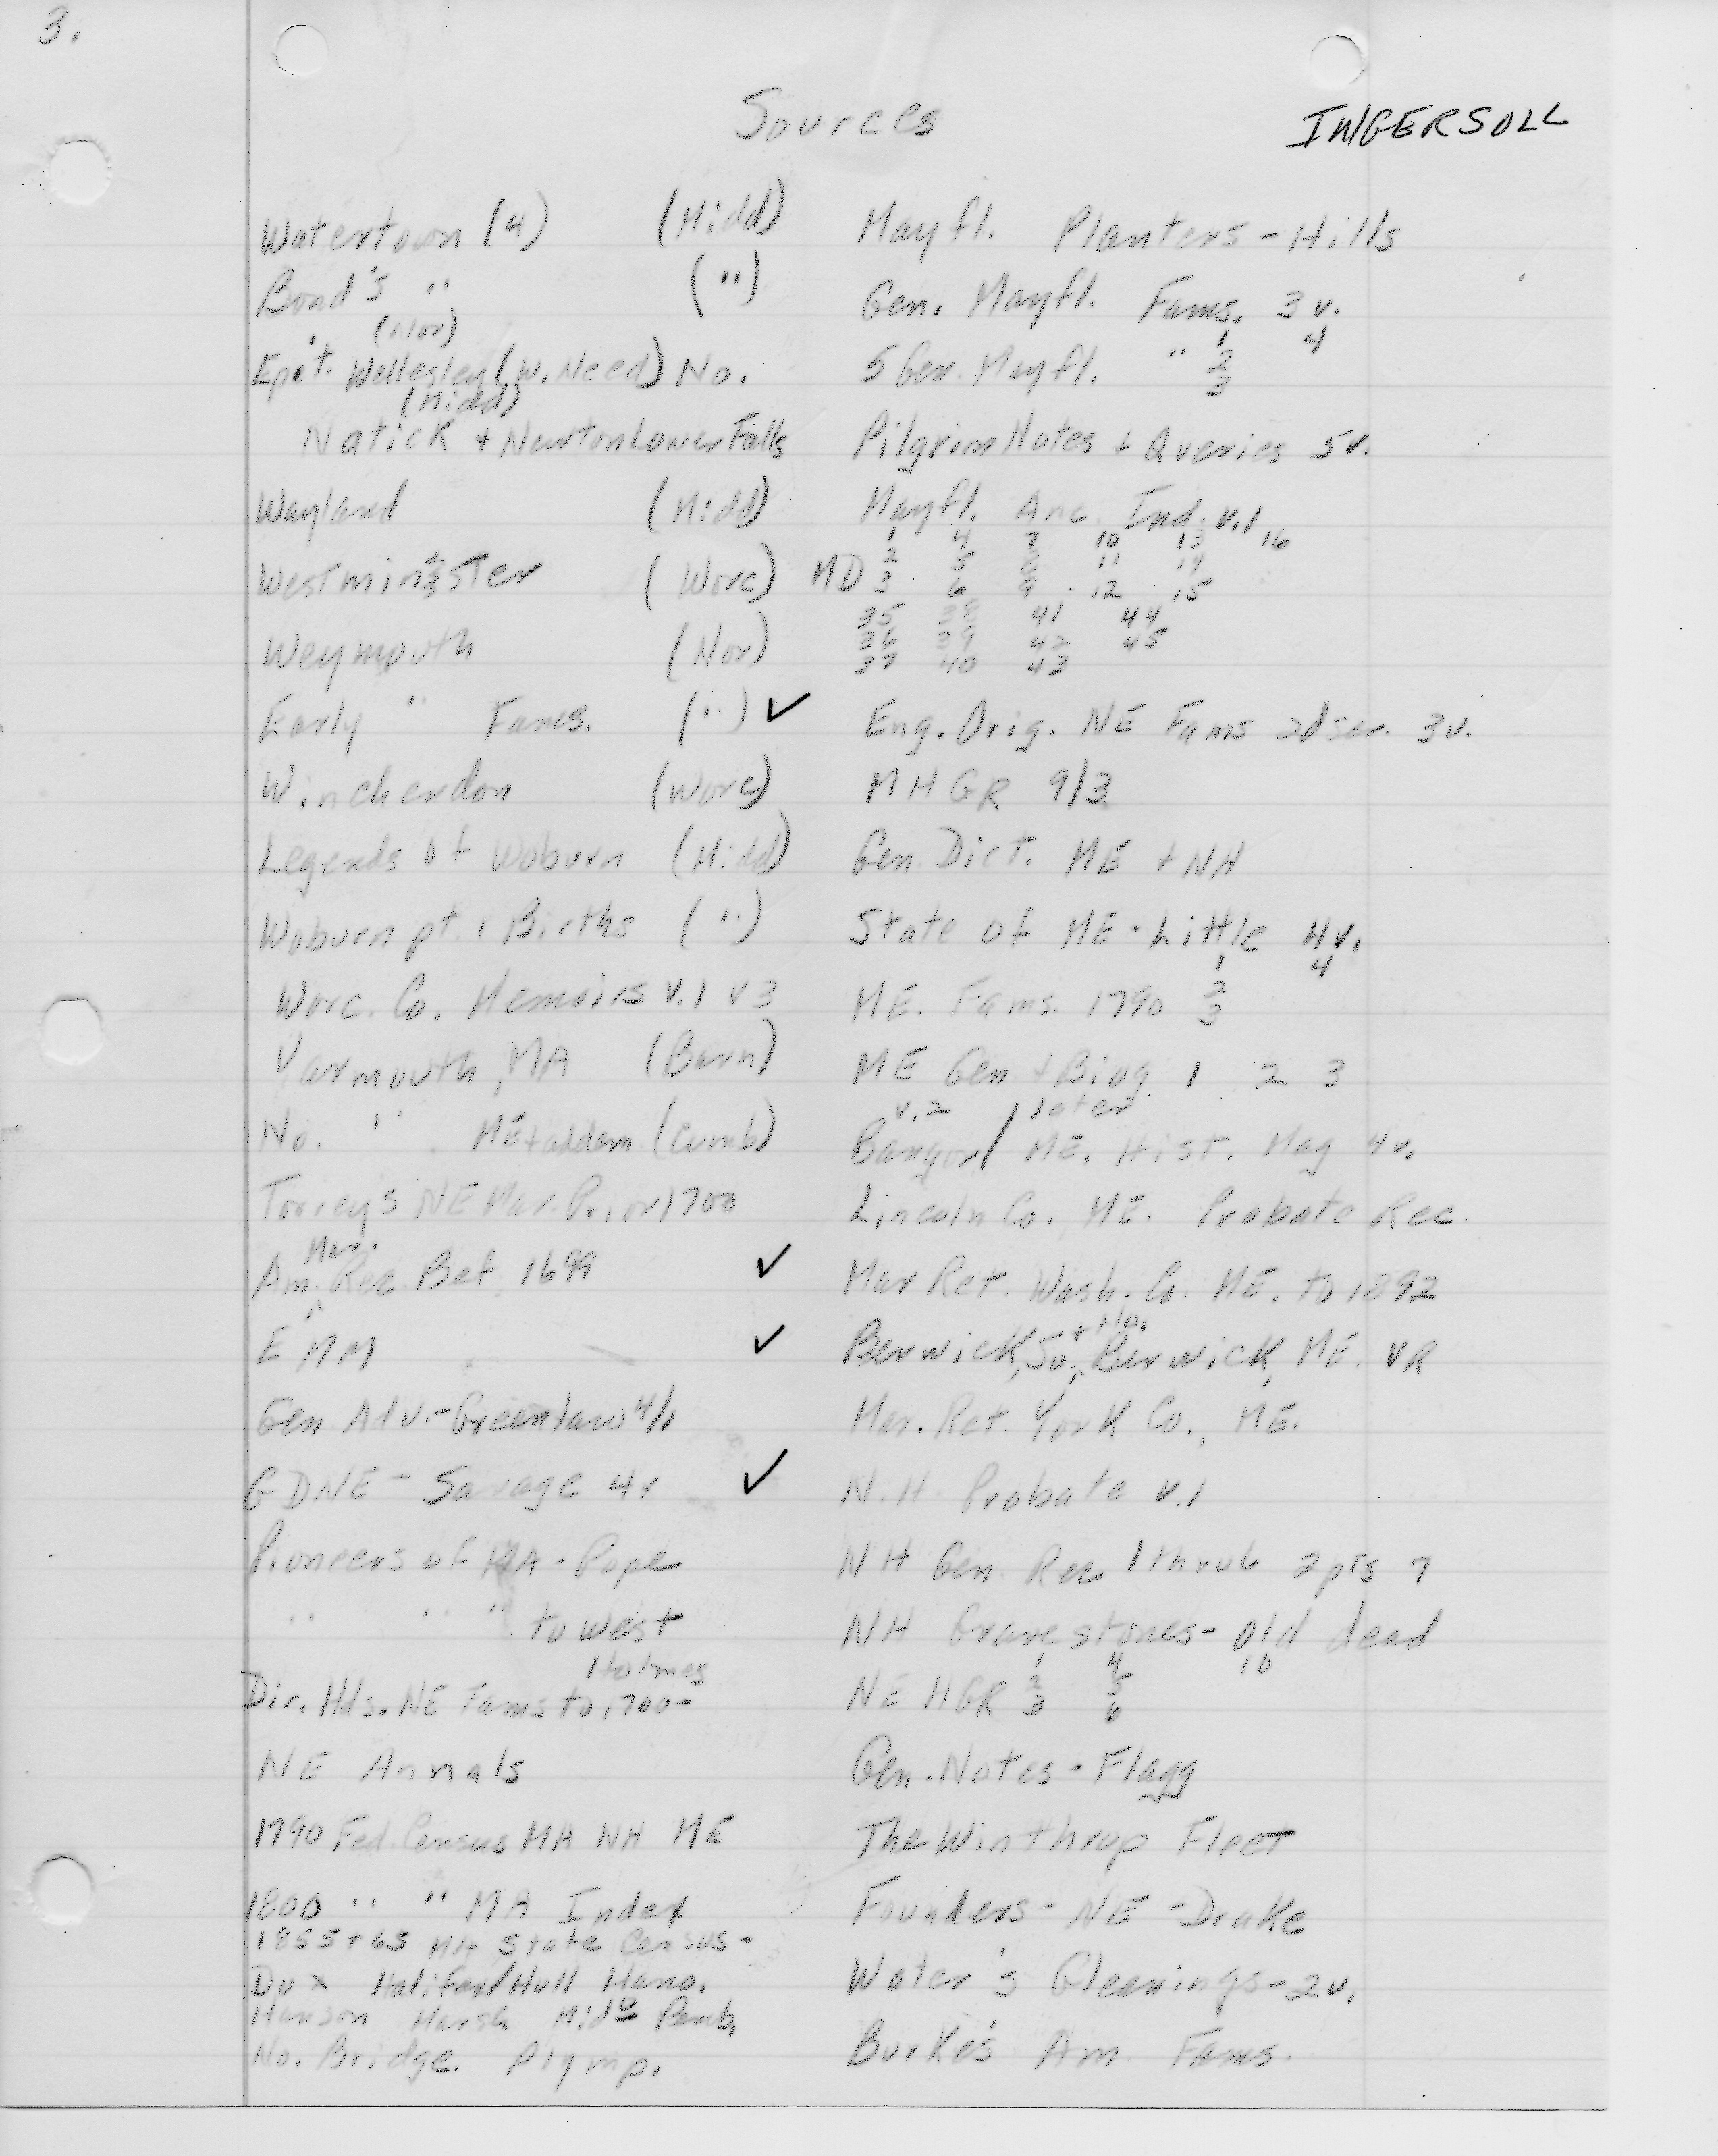 3.
Sources
INGERSOLL
Watertown (4) (Midd)
Bond's " (")
(Nor)
Epit. Wellesley (W. Need) No.
(Midd)
Natick + Newton Lower Falls
Wayland (Midd)
Westminster (Worc)
Weymouth (Nor)
Early " Fames. (") ✓
Winchendon (Worc)
Legends of Woburn (Midd)
Woburn pt. 1 Births (")
Worc. Co. Memoirs v.1 v3
Yarmouth, MA (Barn)
No. " ME + addem. (Cumb)
Torrey's NE Mar. Prior 1700
Mar.
Am. Rec. Bef. 1699 ✓
EMM ✓
Gen. Adv. - Greenlaw 4/1
GDNE - Savage 4v ✓
Pioneers of MA - Pope
" " " to West
Holmes
Dir. Hds. NE Fams to 1700 -
NE Annals
1790 Fed. Census MA NH ME
1800 " " MA Index
1855 + 65 MA State Census -
Dux Halifax/Hull Hano.
Hanson Marsh Mid Pemb.
No. Bridge. Plymp.
Mayfl. Planters - Hills
Gen. Mayfl. Fams. 3 v.
1 4
5 Gen. Mayfl. " 2
3
Pilgrim Notes + Queries 5v.
Mayfl. Anc. Ind. v.1
1 4 7 10 13 16
2 5 8 11 14
MD 3 6 9 12 15
35 38 41 44
36 39 42 45
37 40 43
Eng. Orig. NE Fams 2d ser. 3v.
MHGR 9/3
Gen. Dict. ME + NH
State of ME - Little 4v.
1 4
ME. Fams. 1790 2
3
ME Gen + Biog 1 2 3
v.2 later
Bangor / ME. Hist. Mag 4v.
Lincoln Co. ME. Probate Rec.
Mar Ret. Wash. Co. ME. to 1892
+ No.
Berwick, So. Berwick, ME. VR
Mar. Ret. York Co., ME.
N.H. Probate v.1
NH Gen. Rec 1 thru 6 2 pts 7
NH Gravestones - Old dead
1 4 10
2 5
NEHGR 3 6
Gen. Notes - Flagg
The Winthrop Fleet
Founders - NE - Drake
Water's Gleanings - 2v.
Burke's Am. Fams.